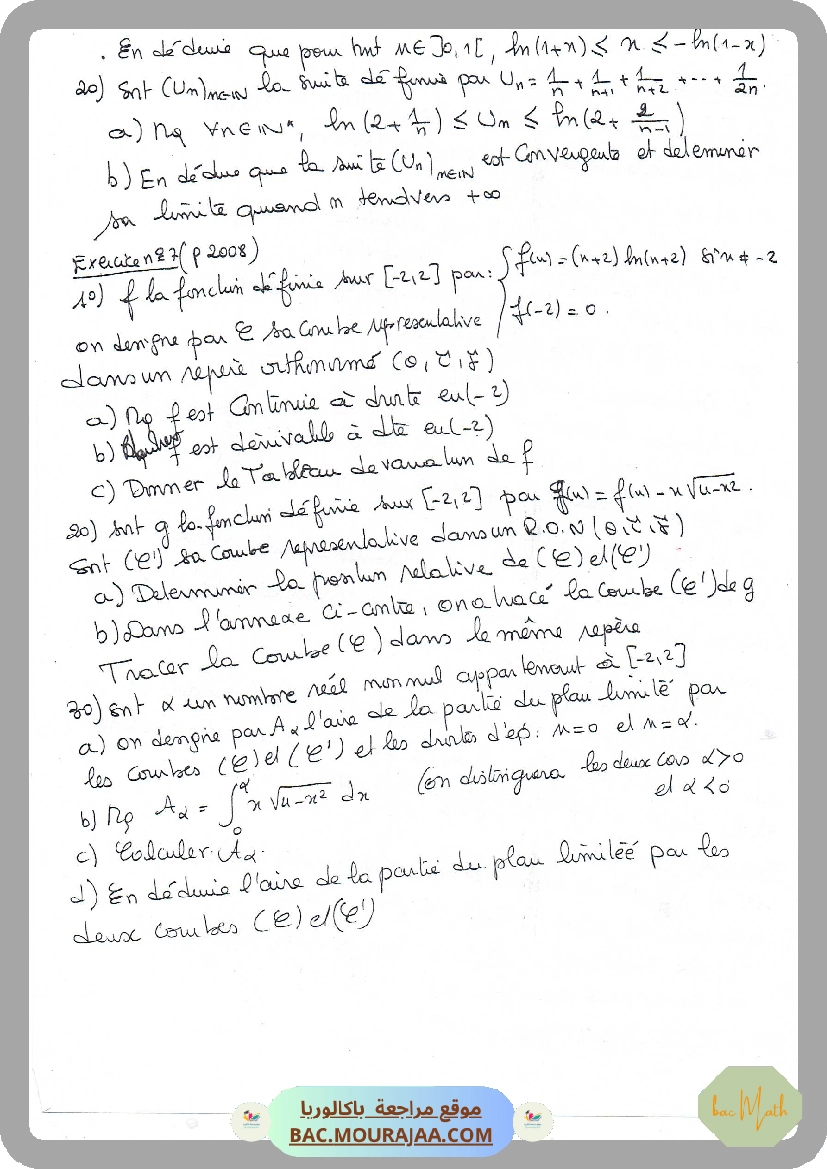 . En déduire que pour tout x∈]0,1[, ln(1+x) ≤ x ≤ -ln(1-x)
2o) Soit (Un)n∈IN la suite définie par Un = 1/n + 1/n+1 + 1/n+2 + ... + 1/2n.
a) Mq ∀n∈IN*, ln(2+1/n) ≤ Un ≤ ln(2+2/n-1)
b) En déduire que la suite (Un)n∈IN est convergente et déterminer
sa limite quand n tend vers +∞
Exercice n°7 (p 2008)
1o) f la fonction définie sur [-2,2] par: { f(x) = (x+2) ln(x+2) si x ≠ -2
f(-2) = 0.
on designe par C sa courbe représentative
dans un repère orthonormé (O, i, j)
a) Mq f est continue à droite en(-2)
b) f est dérivable à dte en(-2)
c) Donner le Tableau de variation de f
2o) soit g la fonction définie sur [-2,2] par g(x) = f(x) - x√4-x².
Soit (C') sa courbe representative dans un R.O.N (O, i, j)
a) Determiner la position relative de (C) et (C')
b) Dans l'annexe ci-contre, on a tracé la courbe (C') de g
Tracer la courbe (C) dans le même repère
3o) soit α un nombre réel non nul appartenant à [-2,2]
a) on designe par Aα l'aire de la partie du plan limité par
les courbes (C) et (C') et les droites d'eq: x=0 et x=α.
b) Mq Aα = ∫0α x √4-x² dx (on distinguera les deux cas α>0
et α<0
c) Calculer Aα.
d) En déduire l'aire de la partie du plan limiteé par les
deux courbes (C) et (C')
bac Math
موقع مراجعة باكالوريا
BAC.MOURAJAA.COM